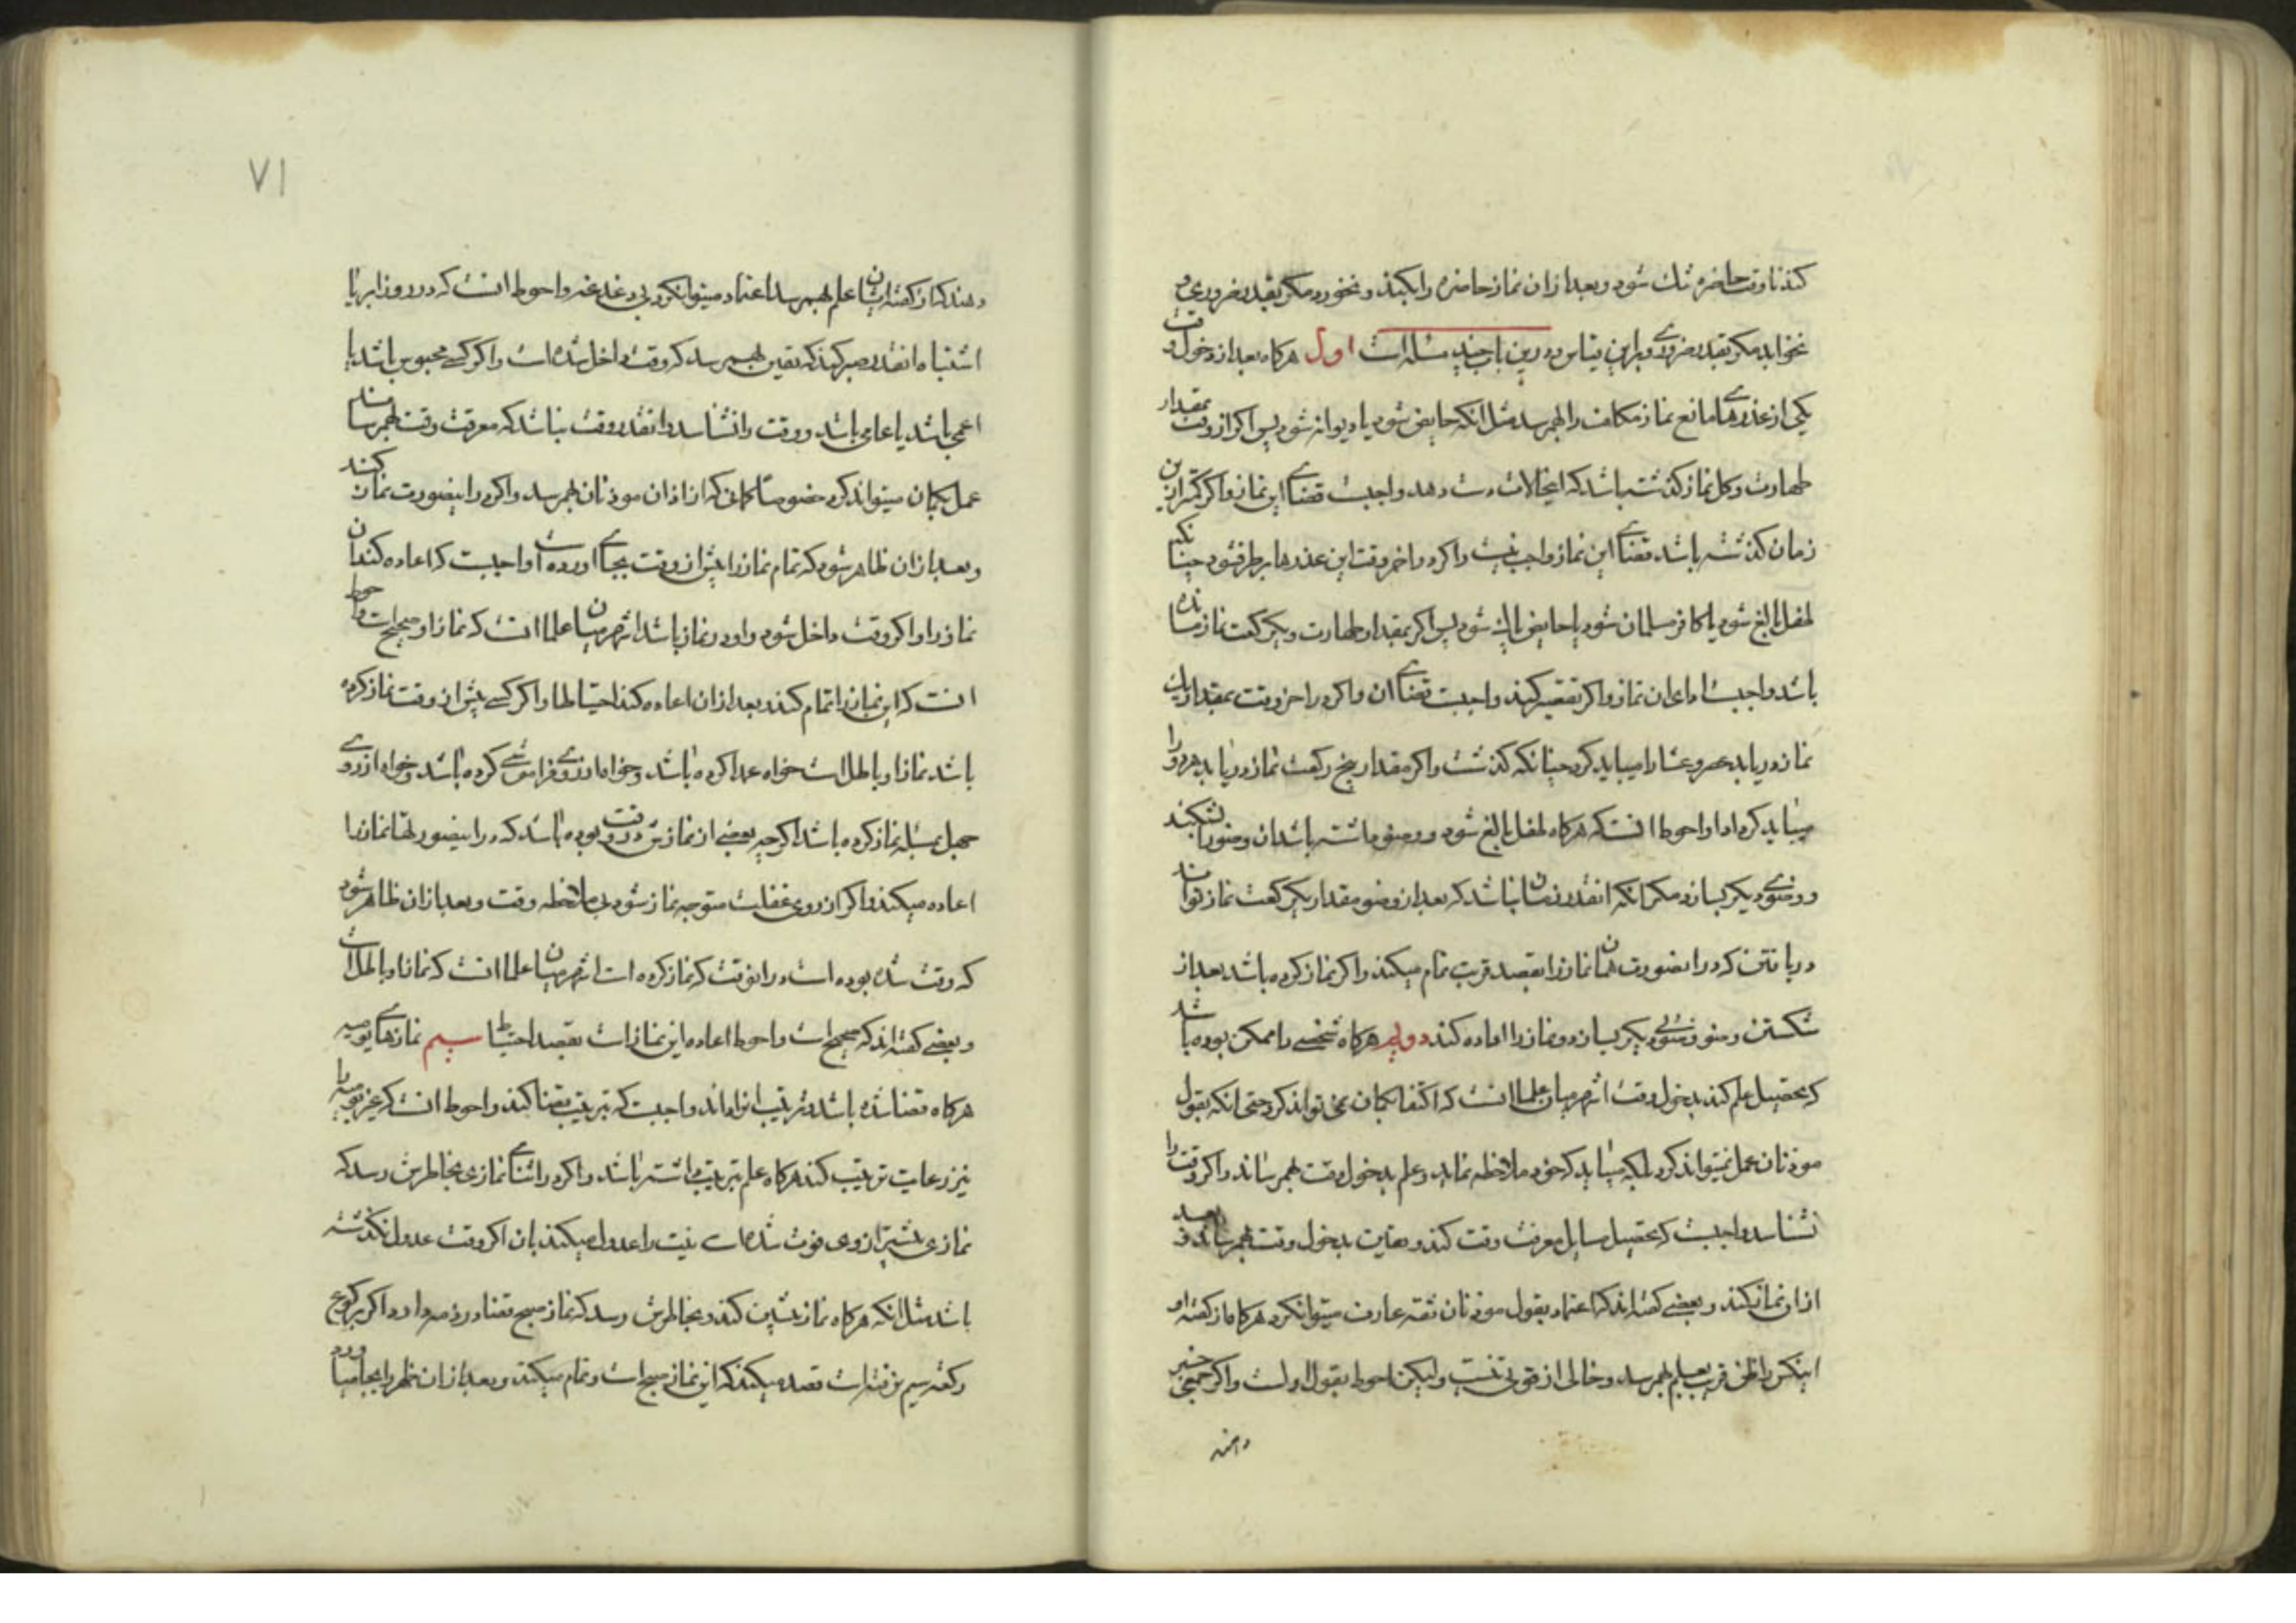 کند تا وقت حاضره تنک شود و بعد از ان نماز حاضره را بکند و نخورد مکر بقدر ضروری و
نخوابد مکر بقدر ضروری و براین قیاس و درین باب چند مسئله است اول هرکاه بعد از دخول وقت
یکی از عذرهای مانع نماز مکلف را بهم رسد مثل انکه حایض شود یا دیوانه شود پس اکر از وقت بمقدار
طهارت و کل نماز کذشته باشد که اینحالات دست دهد واجبست قضای این نماز و اکر کمتر ازین
زمان کذشته باشد قضای این نماز واجب نیست و اکر در اخر وقت این عذرها برطرف شود چنانکه
طفل بالغ شود یا کافر مسلمان شود یا حایض پاک شود پس اکر بمقدار طهارت و یکرکعت نماز مانده
باشد واجبست ادای ان نماز و اکر تقصیر کند واجبست قضای ان و اکر در اخر وقت بمقدار یک
نماز دریابد عصر و عشا را میباید کرد چنانکه کذشت و اکر مقدار پنج رکعت نماز دریابد هردو را
میباید کرد ادا و احوط انست که هرکاه طفل بالغ شود و وضو داشته باشد ان وضو را بشکند
و وضوی دیکر بسازد مکر انکه انقدر زمان نباشد که بعد از وضو مقدار یکرکعت نماز تواند
دریافتن که درینصورت همان نماز را بقصد قربت تمام میکند و اکر نماز کرده باشد بعد از
شکستن وضو وضوی دیکر بسازد و نماز را اعاده کند دویم هرکاه شخصی را ممکن بوده باشد
که تحصیل علم کند بدخول وقت اشهر میان علما انست که اکتفا بکمان نمی تواند کرد حتی انکه بقول
موذنان عمل نمیتواند کرد بلکه میباید که خود ملاحظه نماید و علم بدخول وقت بهمرساند و اکر وقت را
نشناسد واجبست که تحصیل مسایل معرفت وقت کند و بدخول وقت بهمرساند و
اذان نماز کند و بعضی کفته اند که اعتماد بقول موذنان ثقه عارف میتوانکرد هرکاه از کفته او
اینکس را ظن قریب بعلم بهمرسد و خالی از قوتی نیست ولیکن احوط بقول اولست و اکر جمعی خبر
دهند
۷۱
دهند که از کفته ایشان علم بهم رسد اعتماد میتوانکرد بی دغدغه و احوط انست که در روز ابر یا
اشتباه انقدر صبر کند که یقین بهم رسد که وقت داخل شده است و اکر کسی محبوس باشد یا
اعمی باشد یا عامی باشد و وقت را نشناسد و انقدر وقت نباشد که معرفت وقت بهمرساند
عمل بکمان میتواند کرد خصوصا کمانی که از اذان موذنان بهمرسد و اکر درینصورت نماز کند
و بعد از ان ظاهر شود که تمام نماز را پیش از وقت بجای اورده است واجبست که اعاده کند ان
نماز را و اکر وقت داخل شود و او در نماز باشد اشهر میان علما انست که نماز او صحیح است و احوط
انست که این نماز را تمام کند و بعد از ان اعاده کند احتیاطا و اکر کسی پیش از وقت نماز کرده
باشد نماز او باطل است خواه عمدا کرده باشد و خواه از روی فراموشی کرده باشد و خواه از روی
جهل بمسئله نماز کرده باشد اکرچه بعضی از نمازش در وقت بوده باشد که درینصورتها نماز را
اعاده میکند و اکر از روی غفلت متوجه نماز شود بی ملاحظه وقت و بعد از ان ظاهر شود
که وقت شده بوده است در انوقت که نماز کرده است اشهر میان علما انست که نماز او باطل است
و بعضی کفته اند که صحیح است و احوط اعاده این نماز است بقصد احتیاط سیم نمازهای یومیه
هرکاه قضا شده باشد و ترتیب انرا داند واجبست که بترتیب قضا کند و احوط انست که غیر یومیه را
نیز رعایت ترتیب کند هرکاه علم بترتیب داشته باشد و اکر در اثنای نمازی بخاطرش رسد که
نمازی پیشتر از وی فوت شده است نیت را عدول میکند بان اکر وقت عدول نکذشته
باشد مثل انکه هرکاه نماز پیشین کند و بخاطرش رسد که نماز صبح قضا در ذمه دارد اکر برکوع
رکعت سیم نرفته است قصد میکند که این نماز صبح است و تمام میکند و بعد از ان ظهر را بجا میاورد